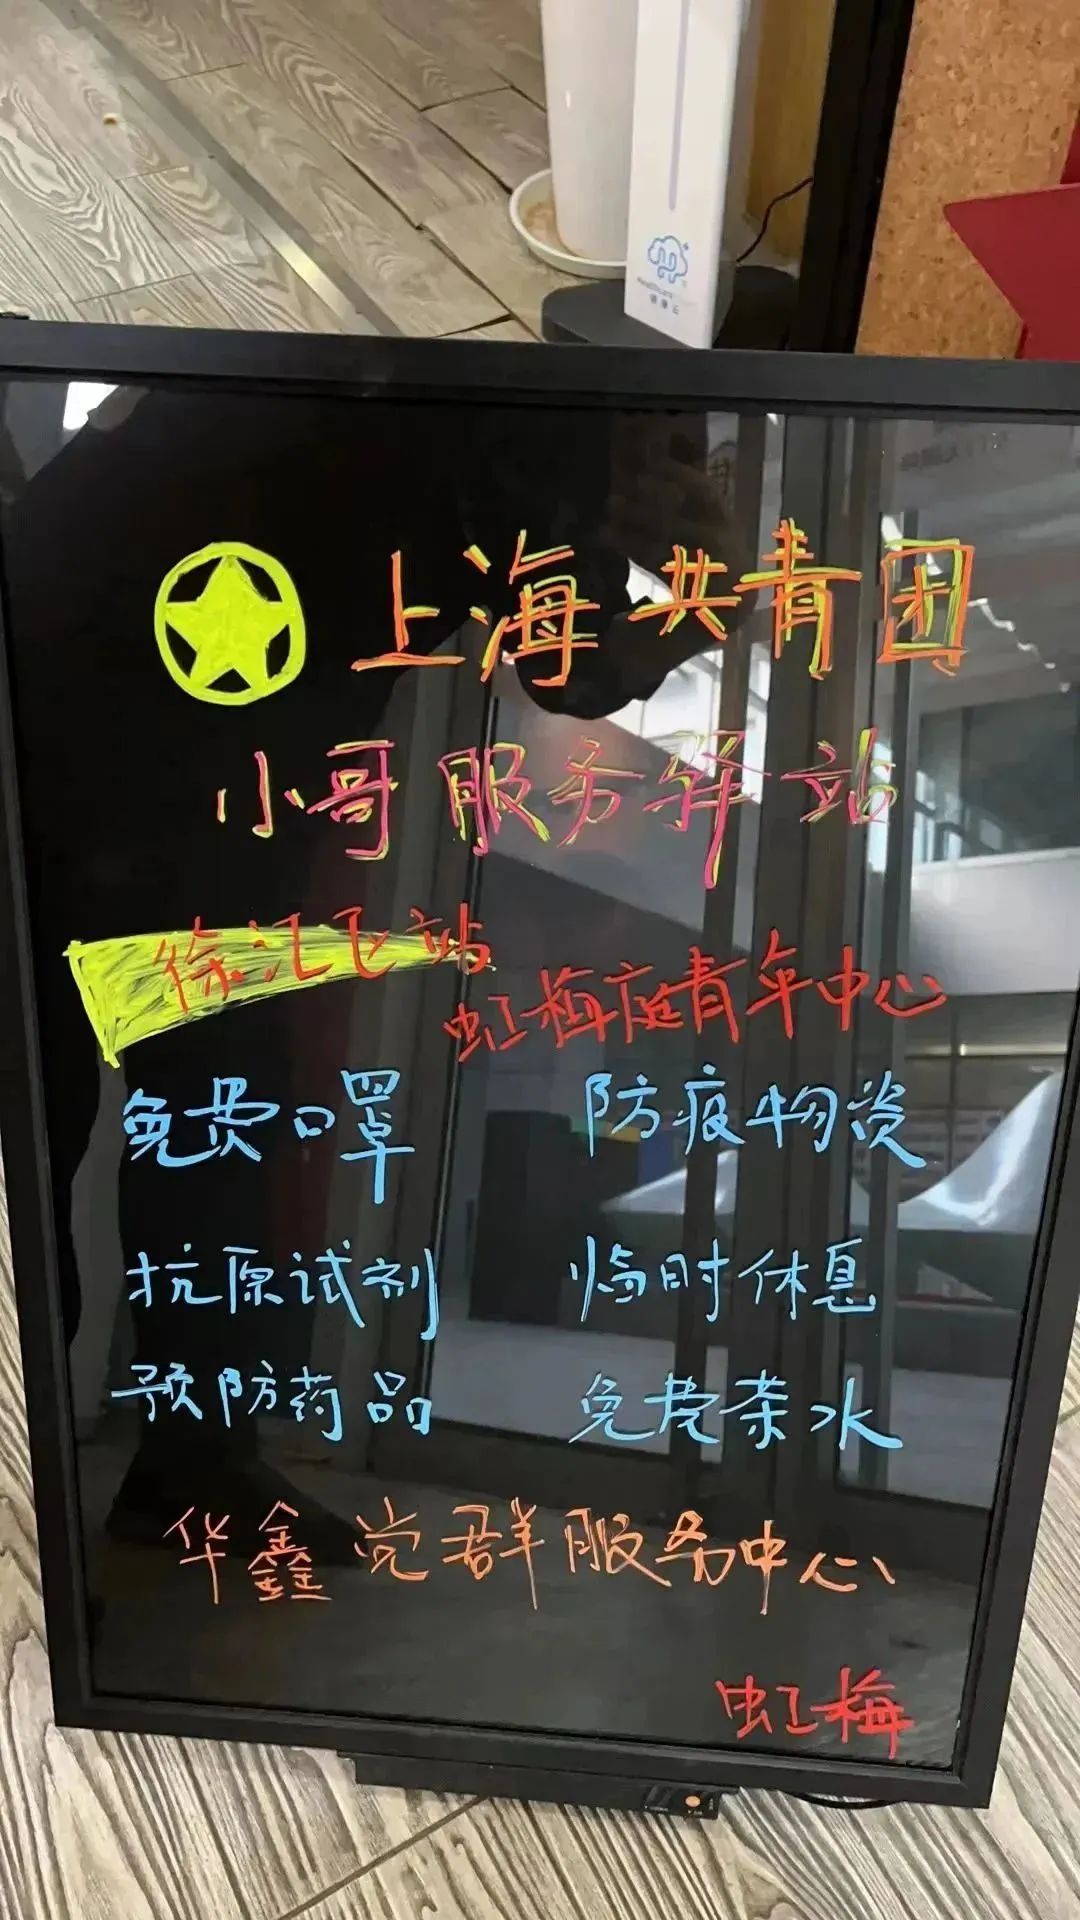 Healthcare
健康云
上海共青团
小哥服务驿站
徐汇区站
虹梅庭青年中心
免费口罩 防疫物资
抗原试剂 临时休息
预防药品 免费茶水
华鑫党群服务中心
虹梅